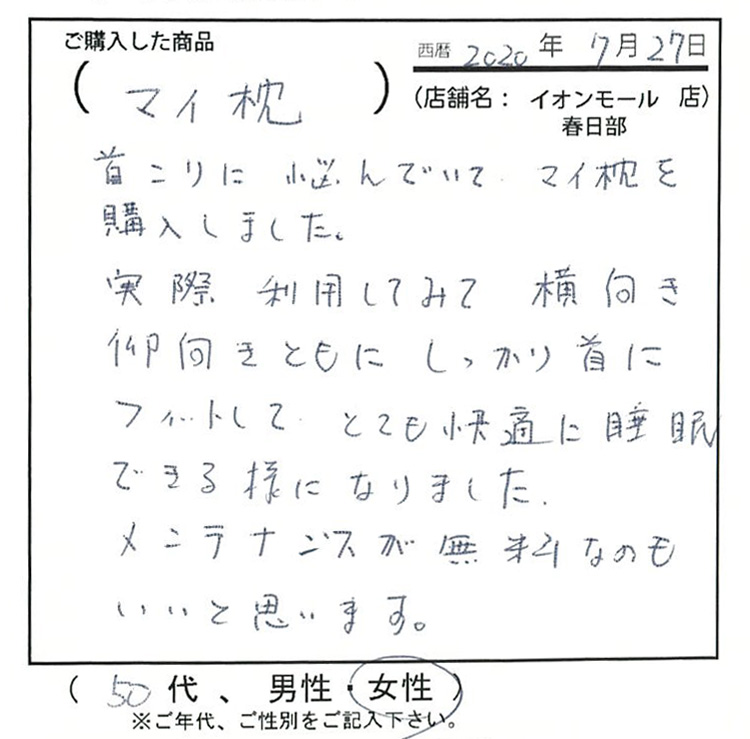 ご購入した商品
西暦 2020 年 7月27日
(マイ枕)
(店舗名: イオンモール 店)
春日部
首こりに 悩んでいて、マイ枕を
購入しました。
実際 利用してみて 横向き
仰向きともに しっかり首に
フィットして、とても快適に睡眠
できる様になりました。
メンテナンスが 無料なのも
いいと思います。
(50代、男性・女性)
※ご年代、ご性別をご記入下さい。